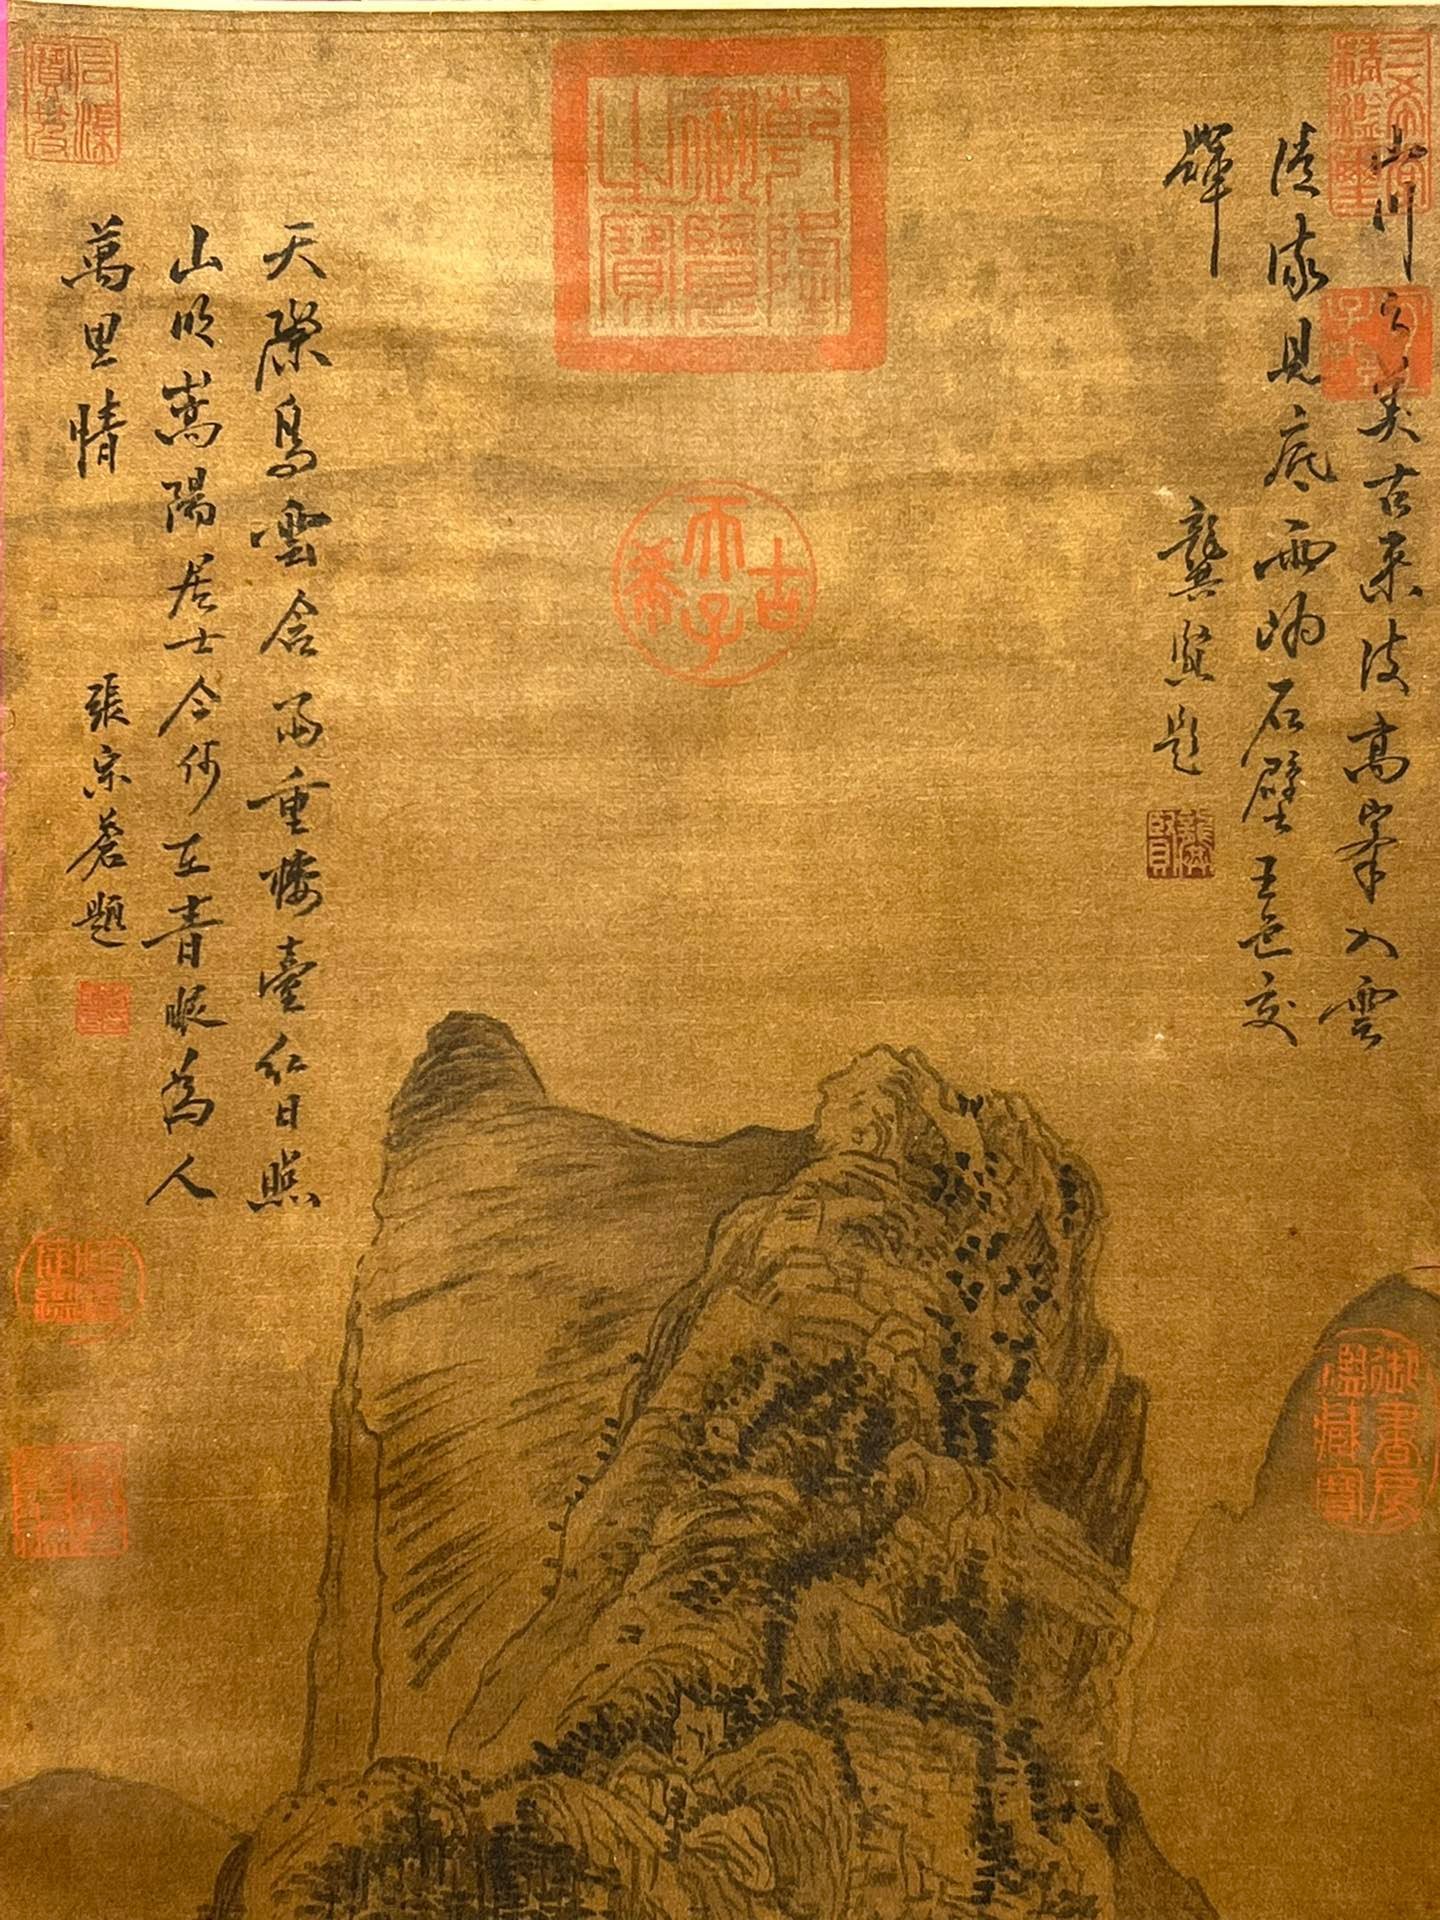 山川之美古來共談高峯入雲
清流見底兩岸石壁五色交
輝
龔賢題
龔賢
三希堂精鑑璽
宜子孫
乾隆御覽之寶
古希天子
天際烏雲含雨重樓臺紅日照
山明嵩陽居士今何在青眼為人
萬里情
張宗蒼題
石渠寶笈
御書房鑑藏寶